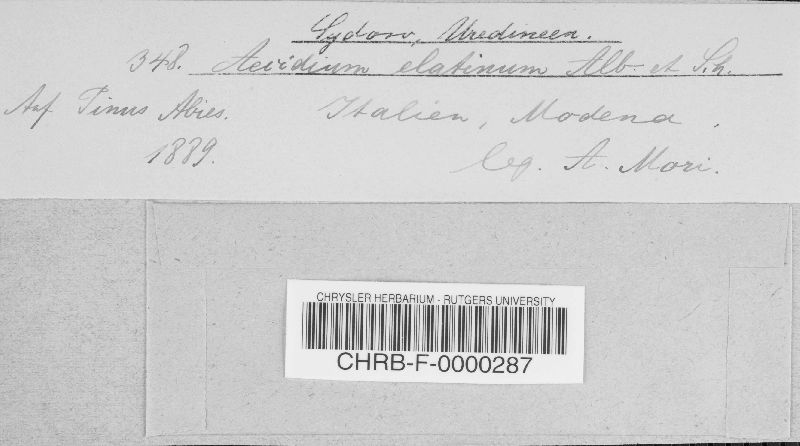 Sydow, Uredineen.
348. Aecidium elatinum Alb. et Sch.
Auf Pinus Abies. Italien, Modena.
1889. leg. A. Mori.
CHRYSLER HERBARIUM - RUTGERS UNIVERSITY
CHRB-F-0000287